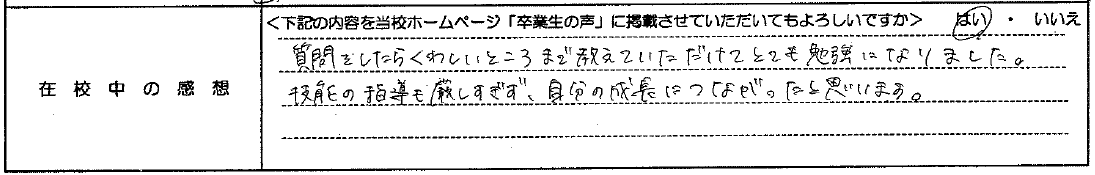 <下記の内容を当校ホームページ「卒業生の声」に掲載させていただいてもよろしいですか> はい ・ いいえ
在校中の感想
質問をしたらくわしいところまで教えていただけてとても勉強になりました。
技能の指導も厳しすぎず、自分の成長につながったと思います。